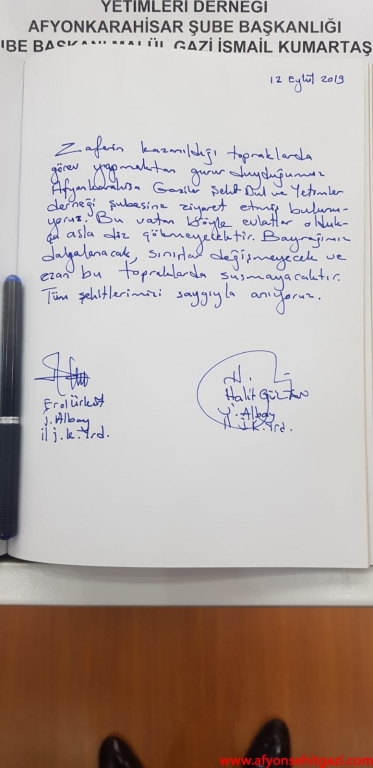 YETİMLERİ DERNEĞİ
AFYONKARAHİSAR ŞUBE BAŞKANLIĞI
UBE BAŞKANI MALÜL GAZİ İSMAİL KUMARTAŞ
12 Eylül 2019
Zaferin kazanıldığı topraklarda
görev yapmaktan gurur duyduğumuz
Afyonkarahisar Gaziler Şehit Dul ve Yetimler
derneği şubesine ziyaret etmiş bulunu-
yoruz. Bu vatan böyle evlatlar olduk-
ça asla diz çökmeyecektir. Bayrağımız
dalgalanacak, sınırlar değişmeyecek ve
ezan bu topraklarda susmayacaktır.
Tüm şehitlerimizi saygıyla anıyoruz.
Erol Ürküt
J. Albay
İl j. k. Yrd.
Halit
J. Albay
İl J. K. Yrd.
www.afyonsehitgazi.com